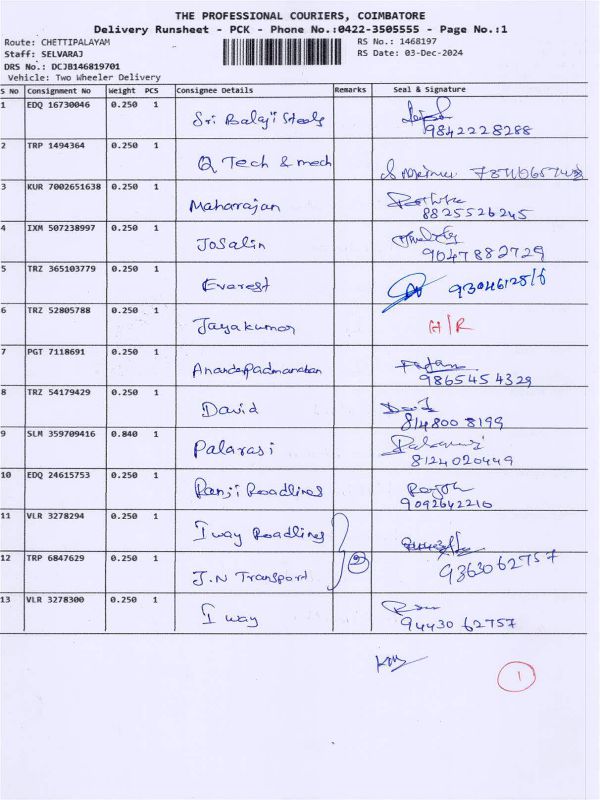 THE PROFESSIONAL COURIERS, COIMBATORE
Delivery Runsheet - PCK - Phone No.:0422-3505555 - Page No.:1
Route: CHETTIPALAYAM RS No.: 1468197
Staff: SELVARAJ RS Date: 03-Dec-2024
DRS No.: DCJB146819701
Vehicle: Two Wheeler Delivery
S No Consignment No Weight PCS Consignee Details Remarks Seal & Signature
1 EDQ 16730046 0.250 1 Sri Balaji Steels
9842228288
2 TRP 1494364 0.250 1 Q Tech & mech
3 KUR 7002651638 0.250 1 Maharrajan
8825526245
4 IXM 507238997 0.250 1 Josalin
9047882729
5 TRZ 365103779 0.250 1 Everest
6 TRZ 52805788 0.250 1 Jayakumar
7 PGT 7118691 0.250 1 AnandaPadmanaban
9865454329
8 TRZ 54179429 0.250 1 David
8148008199
9 SLM 359709416 0.840 1 Palarasi
8124020449
10 EDQ 24615753 0.250 1 Ranji Roadlines
9092642210
11 VLR 3278294 0.250 1 I way Roadlines
2
12 TRP 6847629 0.250 1 J.N Transport 9363062757
13 VLR 3278300 0.250 1 I way
9443062757
1